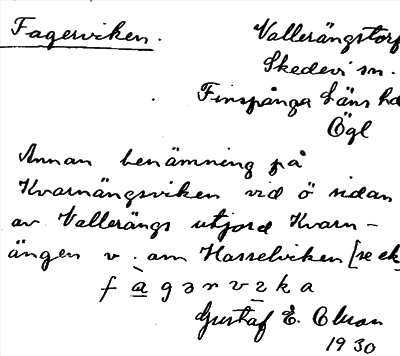 Fagerviken.
Vallerängstorp
Skedevi sn.
Finspånga Läns hd
Ögl
Annan benämning på
Kvarnängsviken vid ö sidan
av Vallerängs utjord Kvarn-
ängen v. om Hasselviken [se ek
f à g ə r v ɛ k a
Gustaf E. Olsson
1930